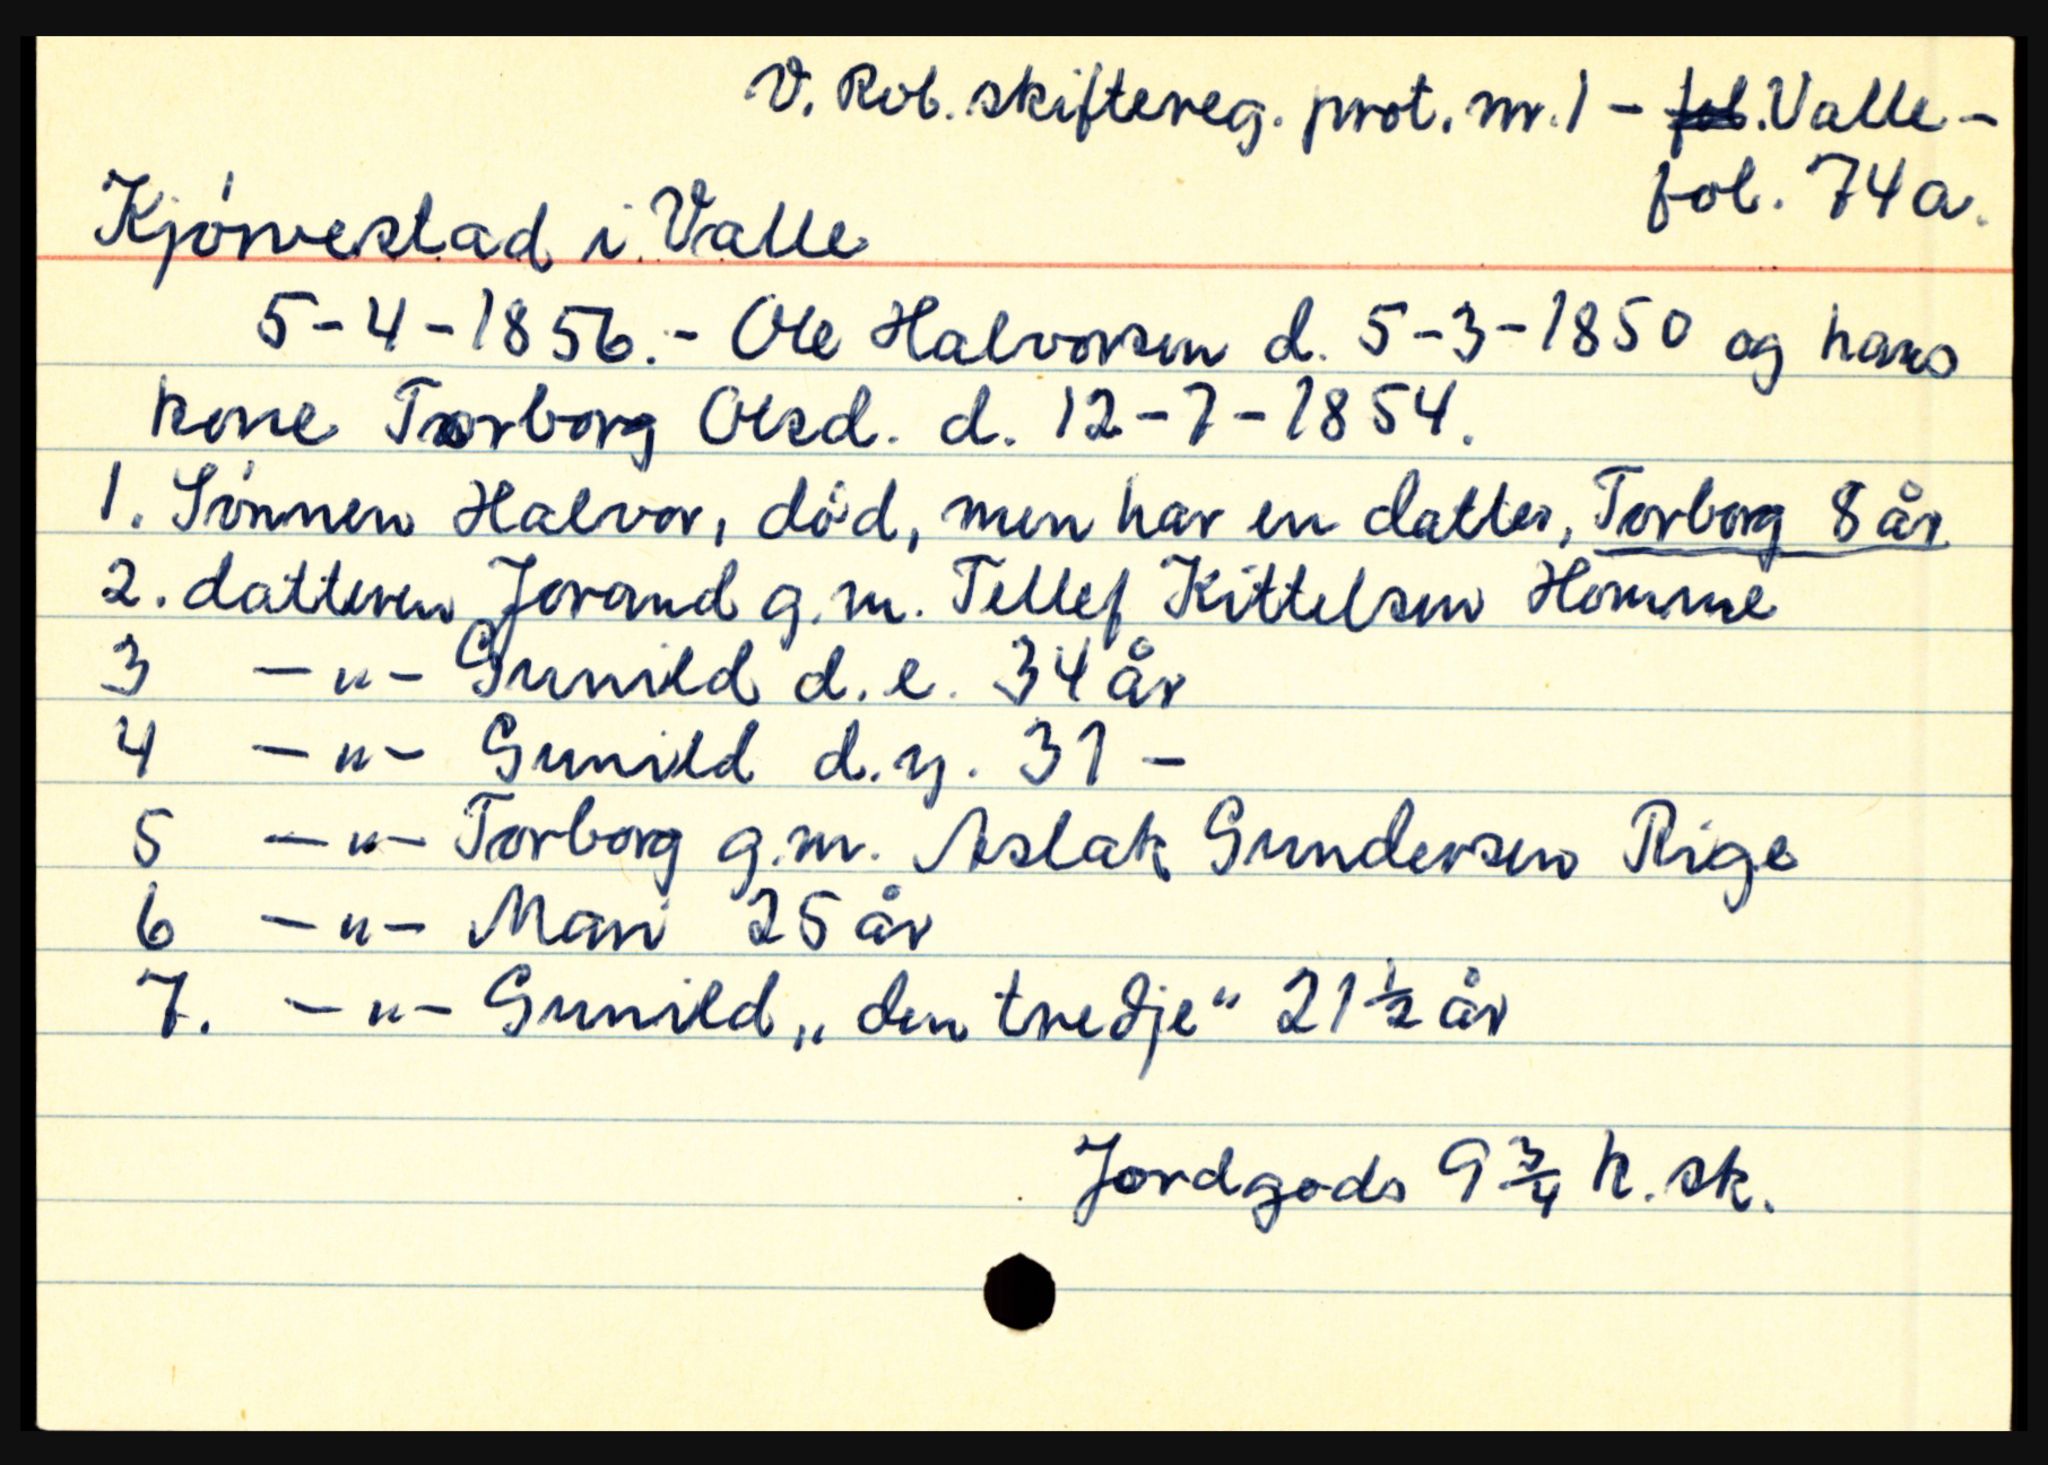 V. Rob. skiftereg. prot. nr. 1 - fol. Valle -
fol. 74a.
Kjørvestad i Valle
5-4-1856.- Ole Halvorsen d. 5-3-1850 og hans
kone Torborg Olsd. d. 12-7-1854.
1. Sønnen Halvor, død, men har en datter, Torborg 8 år
2. datteren Jorand g.m. Tellef Kittelsen Homme
3 -"- Gunild d.e. 34 år
4 -"- Gunild d.y. 31 -
5 -"- Torborg g.m. Aslak Gundersen Rige
6 -"- Mari 25 år
7. -"- Gunild „den tredje" 21 1/2 år
Jordgods 9 3/4 k. sk.